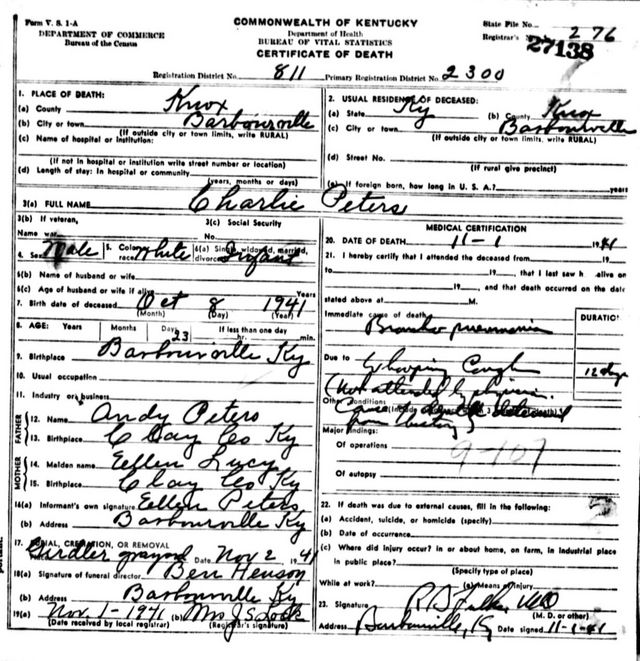 Form V. S. 1-A
DEPARTMENT OF COMMERCE
Bureau of the Census
COMMONWEALTH OF KENTUCKY
Department of Health
BUREAU OF VITAL STATISTICS
CERTIFICATE OF DEATH
State File No.
Registrar's No. 276
27138
Registration District No. 811 Primary Registration District No. 2300
1. PLACE OF DEATH:
(a) County Knox
(b) City or town Barbourville
(If outside city or town limits, write RURAL)
(c) Name of hospital or institution:
(If not in hospital or institution write street number or location)
(d) Length of stay: In hospital or community
(years, months or days)
2. USUAL RESIDENCE OF DECEASED:
(a) State Ky (b) County Knox
(c) City or town Barbourville
(If outside city or town limits, write RURAL)
(d) Street No.
(If rural give precinct)
(e) If foreign born, how long in U. S. A.? years
3(a) FULL NAME Charlie Peters
3(b) If veteran,
Name war
3(c) Social Security
4. Sex Male 5. Color or race White 6(a) Single, widowed, married, divorced Infant
6(b) Name of husband or wife
6(c) Age of husband or wife if alive Years
7. Birth date of deceased Oct 8 1941
(Month) (Day) (Year)
8. AGE: Years Months Days 23 If less than one day
hr. min.
9. Birthplace Barbourville Ky
10. Usual occupation
11. Industry or business
FATHER
12. Name Andy Peters
13. Birthplace Clay Co Ky
MOTHER
14. Maiden name Ellen Lucy
15. Birthplace Clay Co Ky
16(a) Informant's own signature Ellen Peters
(b) Address Barbourville Ky
17. BURIAL, CREMATION, OR REMOVAL
Girdler graveyard Date Nov 2 1941
18(a) Signature of funeral director Ben Henson
(b) Address Barbourville Ky
19(a) Nov. 1-1941 (b) Mrs J S Lock
(Date received by local registrar) (Registrar's signature)
MEDICAL CERTIFICATION
20. DATE OF DEATH 11-1 1941
21. I hereby certify that I attended the deceased from 19
to 19 , that I last saw h alive on
19 , and that death occurred on the date
stated above at M.
Immediate cause of death
DURATION
Broncho pneumonia
Due to Whooping Cough 12 days
(Not attended by physician.
Other Conditions
Cause
from history)
Major findings:
Of operations
9-107
Of autopsy
22. If death was due to external causes, fill in the following:
(a) Accident, suicide, or homicide (specify)
(b) Date of occurrence
(c) Where did injury occur? in or about home, on farm, in industrial place
in public place?
(Specify type of place)
While at work? (e) Means of injury
23. Signature MD
(M. D. or other)
Address Barbourville, Ky Date signed 11-1-41